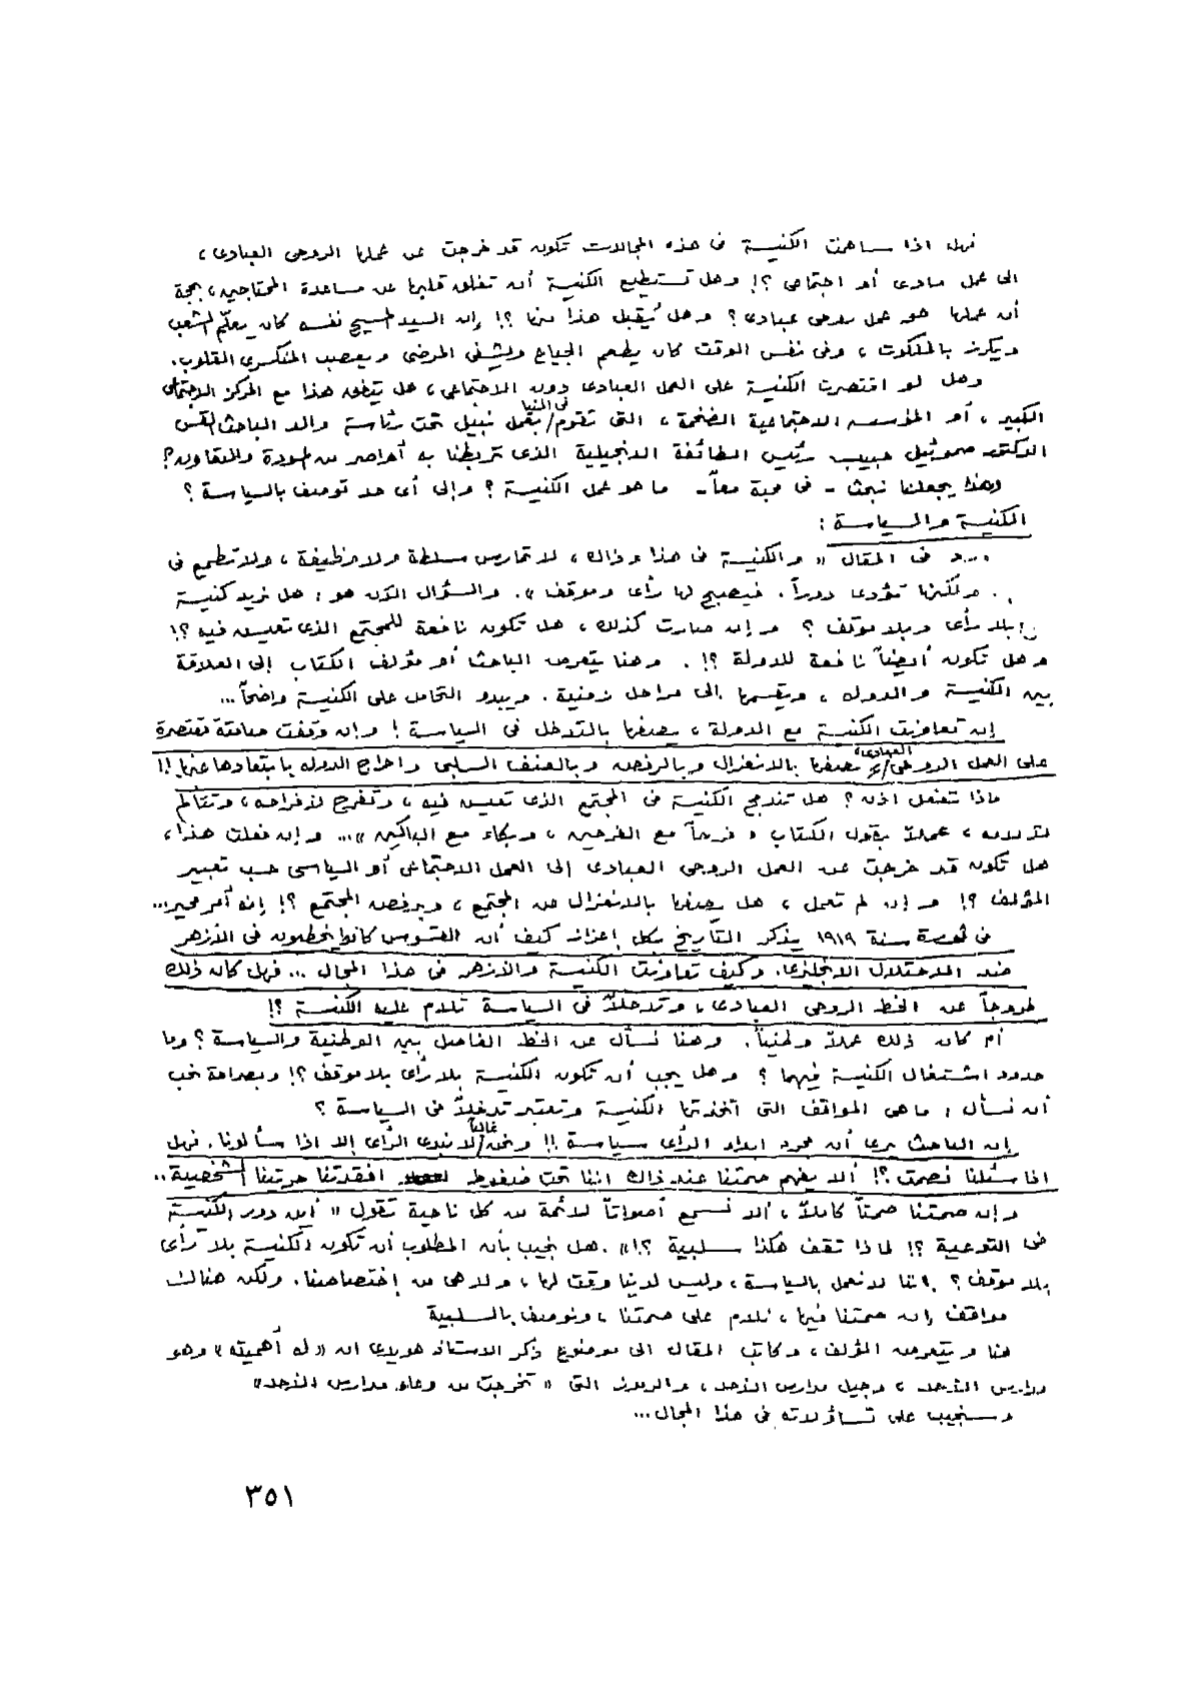 فهل اذا ساهمت الكنيسة فى هذه المجالات تكون قد خرجت عن عملها الروحى العبادى ،
الى عمل مادى أو اجتماعى ؟! وهل تستطيع الكنيسة أن تغلق قلبها عن مساعدة المحتاجين ، بحجة
أن عملها هو عمل روحى عبادى ؟ وهل يُقبل هذا منها ؟! إن السيد المسيح نفسه كان يعلّم الشعب
ويكرز بالملكوت ، وفى نفس الوقت كان يطعم الجياع ويشفى المرضى ويعصب المنكسرى القلوب.
وهل لو اقتصرت الكنيسة على العمل العبادى دون الاجتماعى ، هل يتفق هذا مع المركز الاجتماعى
الكبير ، أو المؤسسه الاجتماعية الضخمة ، التى تقوم / فى المنيا بعمل نبيل تحت رئاسة والد الباحث القس
الدكتور صموئيل حبيب رئيس الطائفة الانجيلية الذى تربطنا به أواصر من المودة والتعاون ؟
وهذا يجعلنا نبحث - فى محبة معاً - ما هو عمل الكنيسة ؟ وإلى أى حد توصف بالسياسة ؟
الكنيسة والسياسة :
ورد فى المقال « والكنيسة فى هذا وذاك ، لا تمارس سلطة ولا وظيفة ، ولا تطمع فى
. ولكنها تؤدى دوراً . فيصبح لها رأى وموقف ». والسؤال الآن هو : هل نريد كنيسة
بلا رأى وبلا موقف ؟ وإن صارت كذلك ، هل تكون نافعة للمجتمع الذى تعيش فيه ؟!
وهل تكون أيضاً نافعة للدولة ؟! . وهنا يتعرض الباحث أو مؤلف الكتاب إلى العلاقة
بين الكنيسة والدولة ، ويقسمها الى مراحل زمنية . ويبدو التحامل على الكنيسة واضحاً ...
إن تعاونت الكنيسة مع الدولة ، يصفها بالتدخل فى السياسة ! وإن وقفت صامتة مقتصرة
على العمل الروحى / العبادى ، يصفها بالانعزال وبالرفض وبالعنف السلبى واحراج الدوله بابتعادها عنها !!
ماذا تفعل اذن ؟ هل تندمج الكنيسة فى المجتمع الذى تعيش فيه ، وتفرح لأفراحه ، وتتألم
لآلامه ، عملاً بقول الكتاب « فرحاً مع الفرحين ، وبكاء مع الباكين » ... وإن فعلت هذا ،
هل تكون قد خرجت عن العمل الروحى العبادى إلى العمل الاجتماعى أو السياسى حسب تعبير
المؤلف ؟! وإن لم تعمل ، هل يصفها بالانعزال عن المجتمع ، وبرفض المجتمع ؟! إنه أمر محير ...
فى ثورة سنة ١٩١٩ يذكر التاريخ بكل إعزاز كيف أن القسوس كانوا يخطبون فى الأزهر
ضد الاحتلال الانجليزى . وكيف تعاونت الكنيسة والأزهر فى هذا المجال ... فهل كان ذلك
خروجاً عن الخط الروحى العبادى ، وتدخلاً فى السياسة تلام عليه الكنيسة ؟!
أم كان ذلك عملاً وطنياً . وهنا نسأل عن الخط الفاصل بين الوطنية والسياسة ؟ وما
حدود اشتغال الكنيسة فيهما ؟ وهل يجب أن تكون الكنيسة بلا رأى بلا موقف ؟! وبصراحة نحب
أن نسأل : ما هى المواقف التى اتخذتها الكنيسة وتعتبر تدخلاً فى السياسة ؟
إن الباحث يرى أن مجرد ابداء الرأى سياسة !! ونحن / غالباً لا نبدى الرأى إلا اذا سألونا . فهل
اذا سئلنا نصمت ؟! ألا يفهم صمتنا عند ذاك اننا تحت ضغوط افقدتنا حريتنا الشخصية ..
وإن صمتنا صمتاً كاملاً ، ألا نسمع أصواتاً لائمة من كل ناحية تقول « أين دور الكنيسة
فى التوعية ؟! لماذا تقف هكذا سلبية ؟! ». هل نجيب بأن المطلوب أن تكون الكنيسة بلا رأى
بلا موقف ؟ إننا لا نعمل بالسياسة ، وليس لدينا وقت لها ، ولا هى من إختصاصنا . ولكن هنالك
مواقف إن صمتنا فيها ، نلام على صمتنا ، ونوصف بالسلبية
هنا ويتعرض المؤلف ، وكاتب المقال الى موضوع ذكر الاستاذ هويدى ان « له أهميته » وهو
مدارس الأحد ، وجيل مدارس الأحد ، والرموز التى « تخرجت من وعاء مدارس الأحد »
وسنجيب على تساؤلاته فى هذا المجال ...
٣٥١